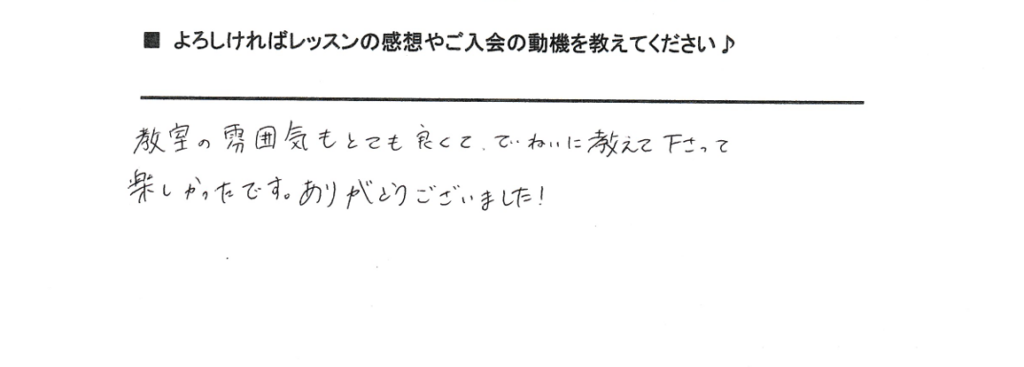 ■ よろしければレッスンの感想やご入会の動機を教えてください♪
教室の雰囲気もとても良くて、ていねいに教えて下さって
楽しかったです。ありがとうございました!